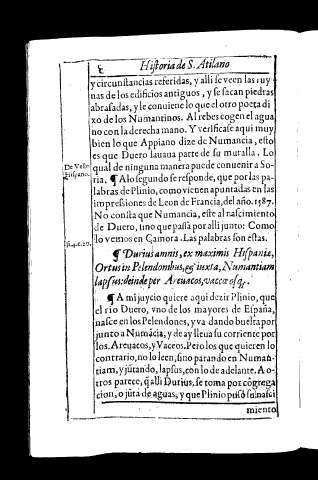 Historia de S. Atilano
y circunstancias referidas, y alli se veen las ruy
nas de los edificios antiguos, y se sacan piedras
abrasadas, y le conuiene lo que el otro poeta di
xo de los Numantinos. Al rebes cogen el agua
no con la derecha mano. Y verificase aqui muy
bien lo que Appiano dize de Numancia, esto
es que Duero lauaua parte de su muralla. Lo
qual de ninguna manera puede conuenir a So-
ria. ¶ A lo segundo se responde, que por las pa-
labras de Plinio, como vienen apuntadas en las
impressiones de Leon de Francia, del año. 1587.
No consta que Numancia, este al nascimiento
de Duero, sino que passa por alli junto: Como
lo vemos en Çamora. Las palabras son estas.
De Vello
Hispano.
¶ Durius amnis, ex maximis Hispaniæ,
Ortus in Pelendonibus, & iuxta, Numantiam
lapsus: deinde per Areuacos, vaccæosq́.
¶ A mi juycio quiere aqui dezir Plinio, que
el rio Duero, vno de los mayores de España,
nasce en los Pelendones, y va dando buelta por
junto a Numãcia, y de ay lleua su corriente por
los. Areuacos, y Vaceos. Pero los que quieren lo
contrario, no lo leen, sino parando en Numan-
tiam, y jũtando, lapsus, con lo de adelante. A o-
tros parece, q̃ alli Durius, se toma por cõgrega
cion, o jũta de aguas, y que Plinio puso su nasci
miento